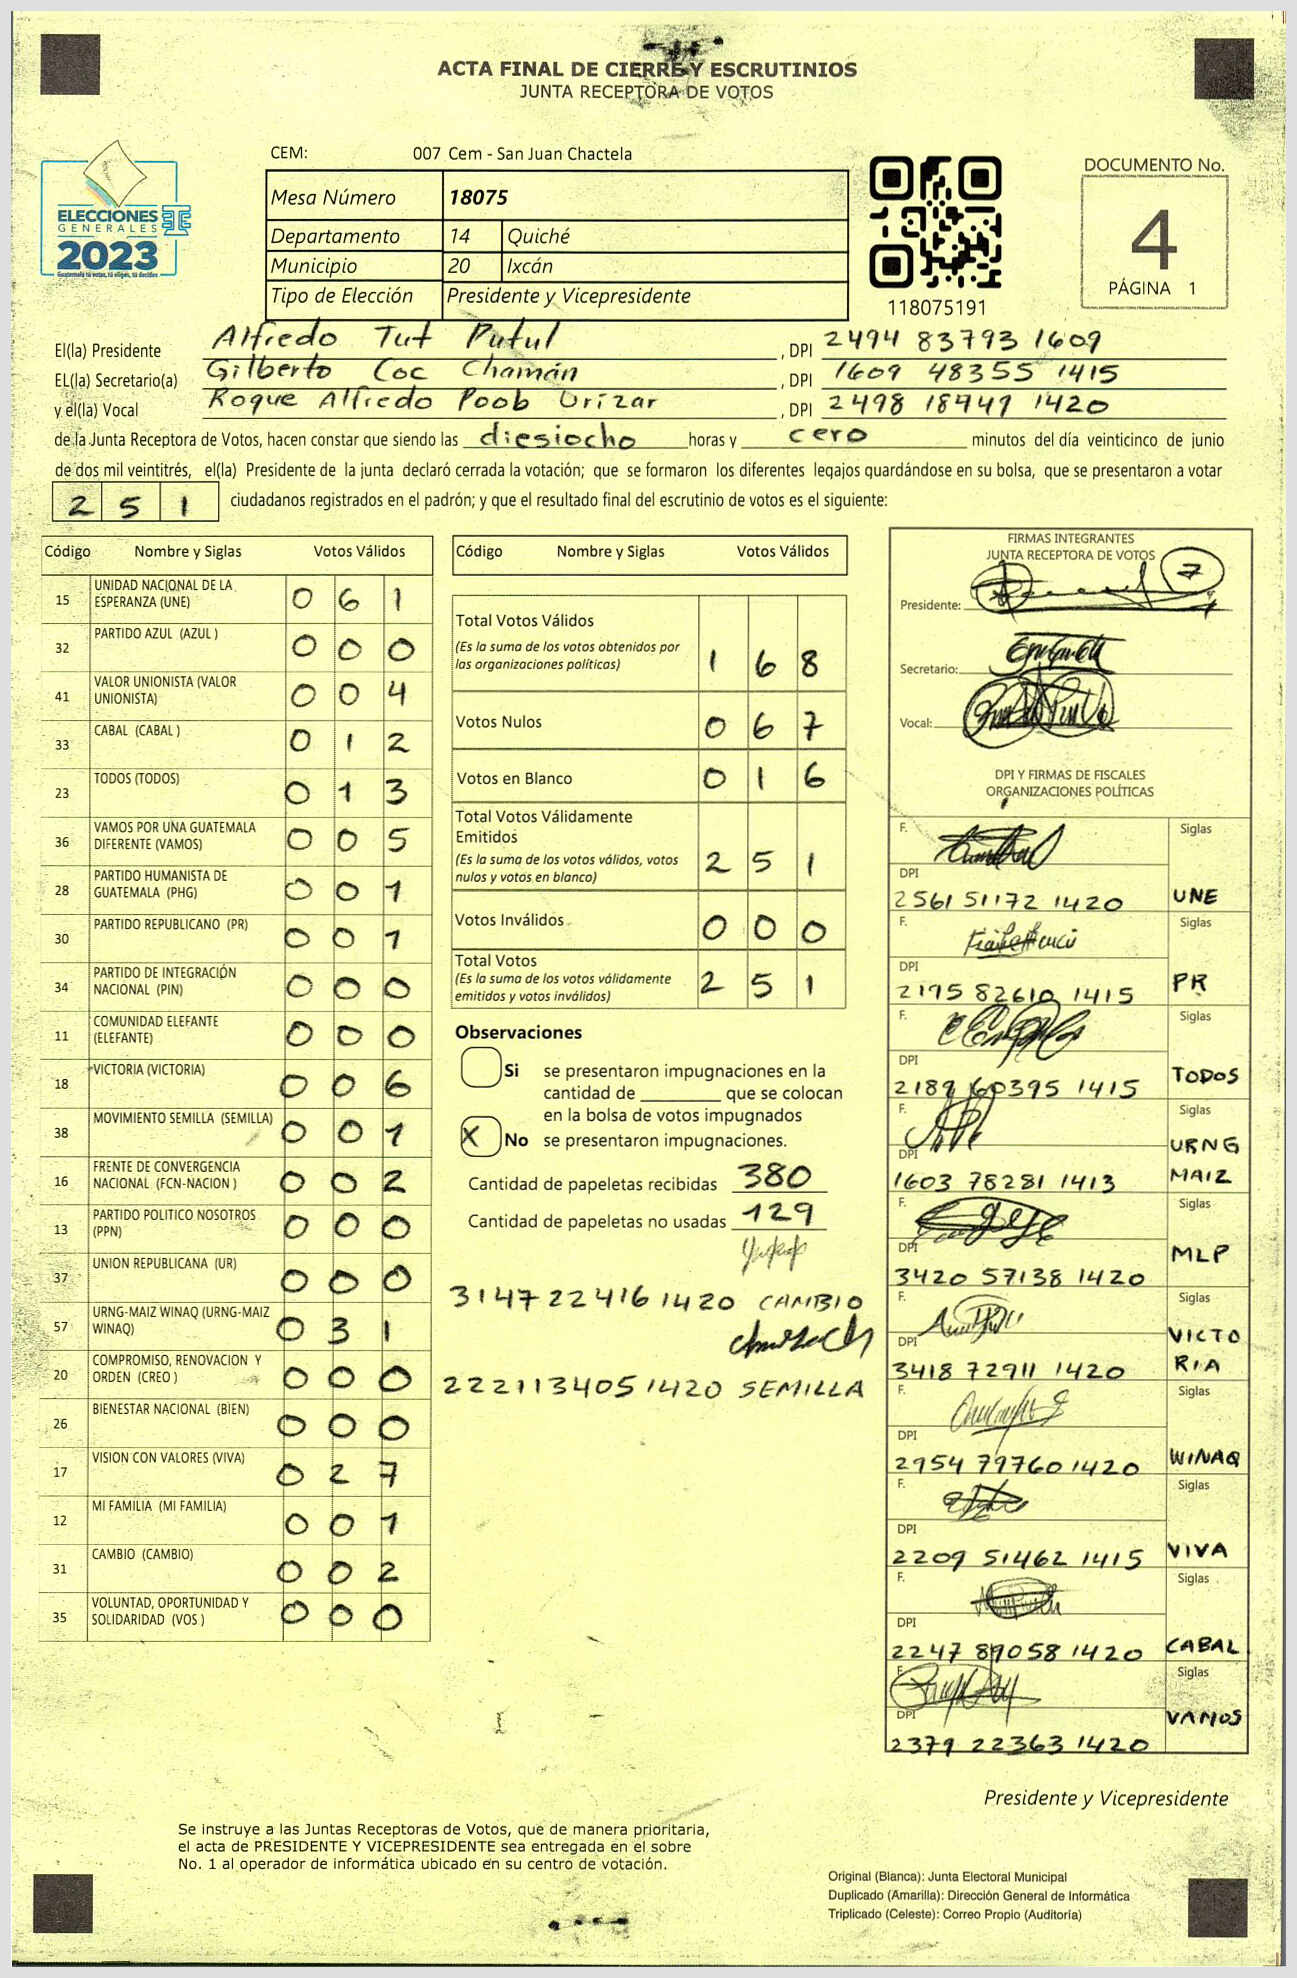 ACTA FINAL DE CIERRE Y ESCRUTINIOS
JUNTA RECEPTORA DE VOTOS
CEM: 007 Cem - San Juan Chactela
Mesa Número 18075
Departamento 14 Quiché
Municipio 20 Ixcán
Tipo de Elección Presidente y Vicepresidente
ELECCIONES
GENERALES
2023
Guatemala tú votas, tú eliges, tú decides
118075191
DOCUMENTO No.
4
PÁGINA 1
El(la) Presidente Alfredo Tut Putul , DPI 2494 83793 1609
EL(la) Secretario(a) Gilberto Coc Chamán , DPI 1609 48355 1415
y el(la) Vocal Roque Alfredo Poob Urízar , DPI 2498 18449 1420
de la Junta Receptora de Votos, hacen constar que siendo las diesiocho horas y cero minutos del día veinticinco de junio
de dos mil veintitrés, el(la) Presidente de la junta declaró cerrada la votación; que se formaron los diferentes legajos guardándose en su bolsa, que se presentaron a votar
2 5 1 ciudadanos registrados en el padrón; y que el resultado final del escrutinio de votos es el siguiente:
Código Nombre y Siglas Votos Válidos
15 UNIDAD NACIONAL DE LA
ESPERANZA (UNE) 0 6 1
32 PARTIDO AZUL (AZUL ) 0 0 0
41 VALOR UNIONISTA (VALOR
UNIONISTA) 0 0 4
33 CABAL (CABAL ) 0 1 2
23 TODOS (TODOS) 0 1 3
36 VAMOS POR UNA GUATEMALA
DIFERENTE (VAMOS) 0 0 5
28 PARTIDO HUMANISTA DE
GUATEMALA (PHG) 0 0 1
30 PARTIDO REPUBLICANO (PR) 0 0 1
34 PARTIDO DE INTEGRACIÓN
NACIONAL (PIN) 0 0 0
11 COMUNIDAD ELEFANTE
(ELEFANTE) 0 0 0
18 VICTORIA (VICTORIA) 0 0 6
38 MOVIMIENTO SEMILLA (SEMILLA) 0 0 1
16 FRENTE DE CONVERGENCIA
NACIONAL (FCN-NACION ) 0 0 2
13 PARTIDO POLITICO NOSOTROS
(PPN) 0 0 0
37 UNION REPUBLICANA (UR) 0 0 0
57 URNG-MAIZ WINAQ (URNG-MAIZ
WINAQ) 0 3 1
20 COMPROMISO, RENOVACION Y
ORDEN (CREO ) 0 0 0
26 BIENESTAR NACIONAL (BIEN) 0 0 0
17 VISION CON VALORES (VIVA) 0 2 7
12 MI FAMILIA (MI FAMILIA) 0 0 1
31 CAMBIO (CAMBIO) 0 0 2
35 VOLUNTAD, OPORTUNIDAD Y
SOLIDARIDAD (VOS ) 0 0 0
Código Nombre y Siglas Votos Válidos
Total Votos Válidos
(Es la suma de los votos obtenidos por
las organizaciones políticas) 1 6 8
Votos Nulos 0 6 7
Votos en Blanco 0 1 6
Total Votos Válidamente
Emitidos
(Es la suma de los votos válidos, votos
nulos y votos en blanco) 2 5 1
Votos Inválidos 0 0 0
Total Votos
(Es la suma de los votos válidamente
emitidos y votos inválidos) 2 5 1
Observaciones
Si se presentaron impugnaciones en la
cantidad de ________ que se colocan
en la bolsa de votos impugnados
X No se presentaron impugnaciones.
Cantidad de papeletas recibidas 380
Cantidad de papeletas no usadas 129
3147 22416 1420 CAMBIO
2221134051420 SEMILLA
FIRMAS INTEGRANTES
JUNTA RECEPTORA DE VOTOS
Presidente:
Secretario:
Vocal:
DPI Y FIRMAS DE FISCALES
ORGANIZACIONES POLÍTICAS
F. Siglas
DPI
2561 51172 1420 UNE
F. Siglas
DPI
2195 82610 1415 PR
F. Siglas
DPI
2189 60395 1415 TODOS
F. Siglas
DPI URNG
1603 78281 1413 MAIZ
F. Siglas
DPI
3420 57138 1420 MLP
F. Siglas
DPI VICTO
3418 72911 1420 RIA
F. Siglas
DPI
2954 79760 1420 WINAQ
F. Siglas
DPI
2209 51462 1415 VIVA
F. Siglas
DPI
2247 89058 1420 CABAL
F. Siglas
DPI
2379 22363 1420 VAMOS
Presidente y Vicepresidente
Se instruye a las Juntas Receptoras de Votos, que de manera prioritaria,
el acta de PRESIDENTE Y VICEPRESIDENTE sea entregada en el sobre
No. 1 al operador de informática ubicado en su centro de votación.
Original (Blanca): Junta Electoral Municipal
Duplicado (Amarilla): Dirección General de Informática
Triplicado (Celeste): Correo Propio (Auditoría)